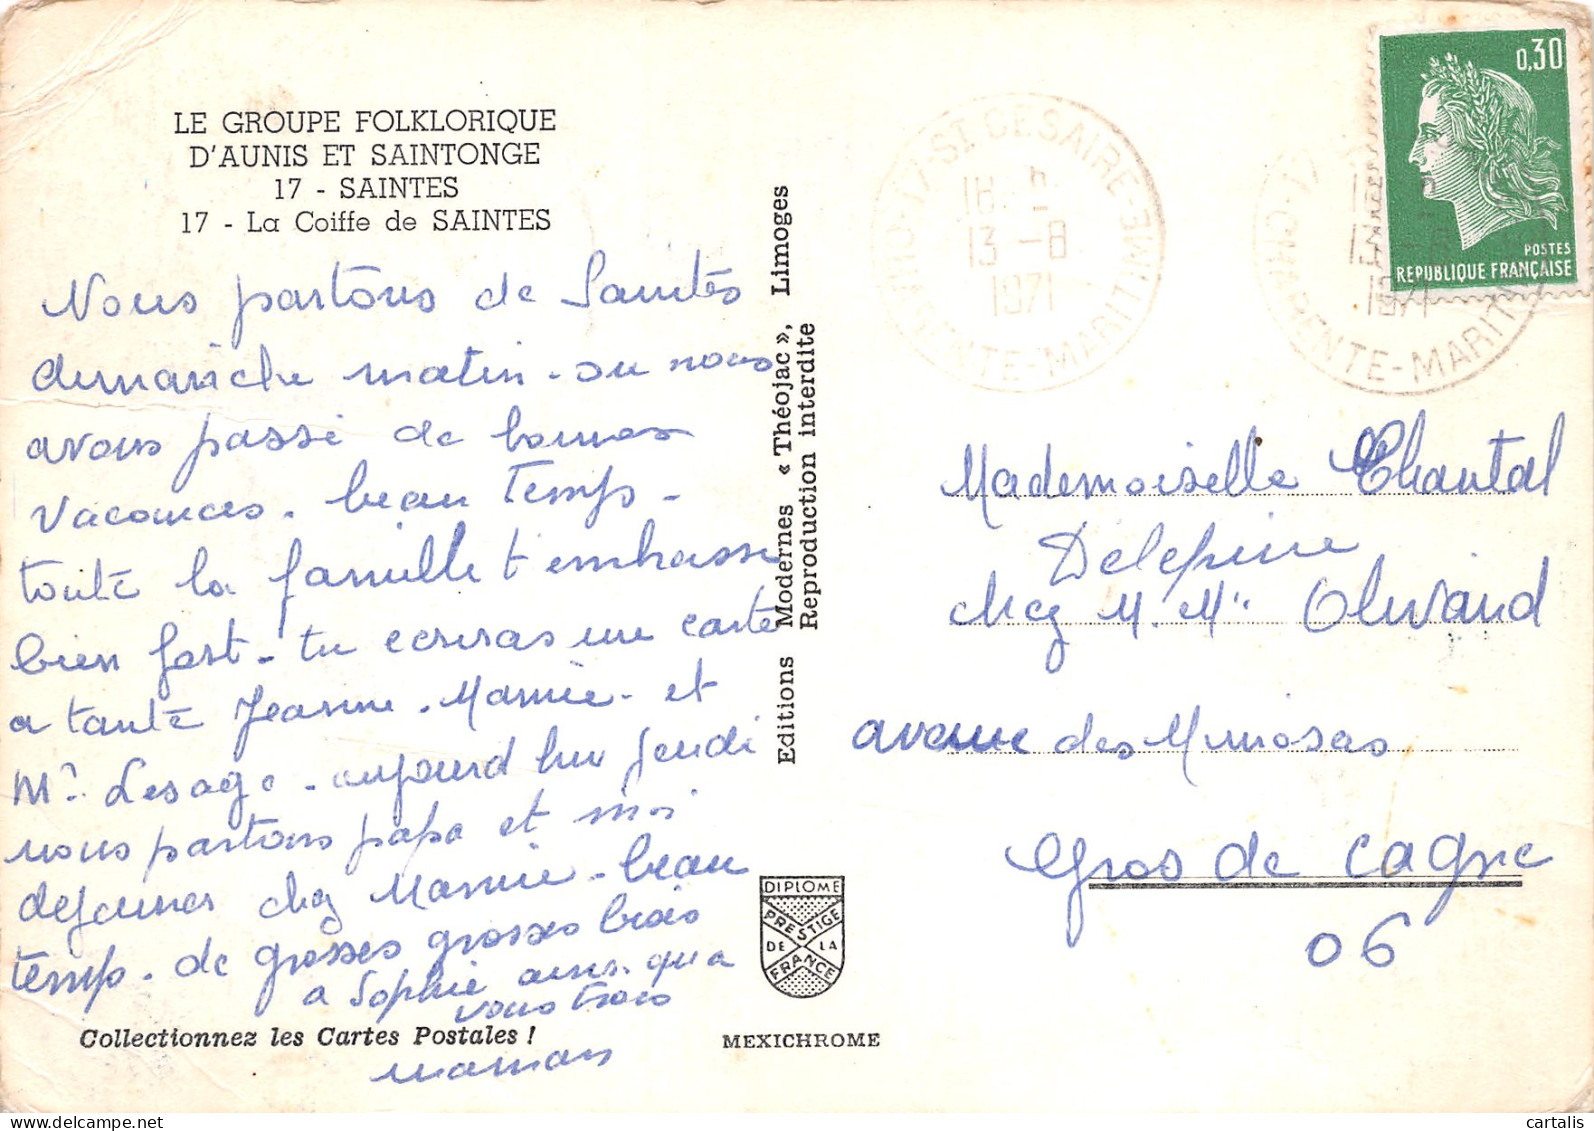 LE GROUPE FOLKLORIQUE
D'AUNIS ET SAINTONGE
17 - SAINTES
17 - La Coiffe de SAINTES
Nous partons de Saintes
dimanche matin - ou nous
avons passé de bonnes
vacances. beau temps -
toute la famille t'embrasse
bien fort - tu ecriras une carte
a tante Jeanne - Mamie - et
Mr Lesage - aujourd hui Jeudi
nous partons papa et moi
dejeuner chez Mamie - beau
temps - de grosses grosses bises
a Sophie ainsi qu a
vous trois
maman
Collectionnez les Cartes Postales !
Editions Modernes « Théojac », Limoges
Reproduction interdite
DIPLOME
PRESTIGE
DE LA
FRANCE
MEXICHROME
17 ST CESAIRE
CHARENTE-MARITIME
18 h
13 - 8
1971
17
CHARENTE-MARIT
1971
0,30
POSTES
REPUBLIQUE FRANÇAISE
Mademoiselle Chantal
Delepine
chez M. Me Olivaud
avenue des Mimosas
Gros de Cagne
06
cartalis